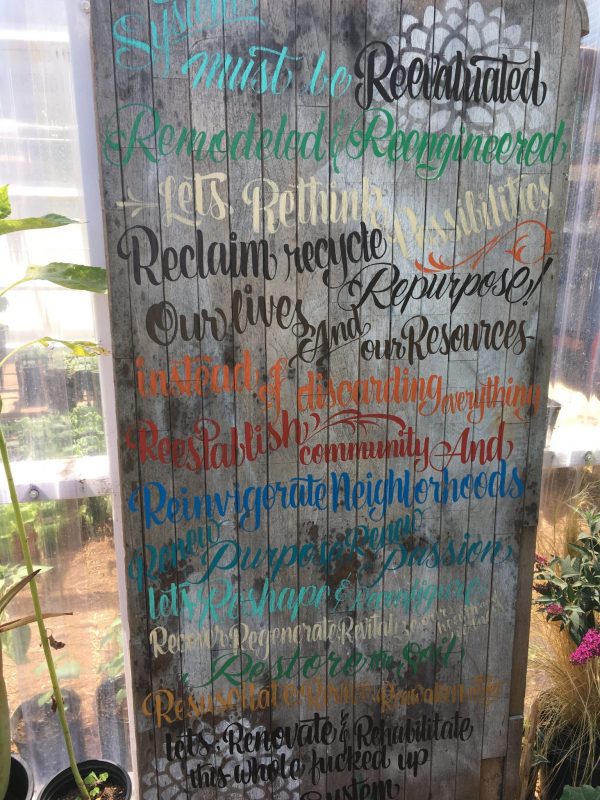 Systems
must be Reevaluated
Remodeled & Reengineered
Let's Rethink Possibilities
Reclaim recycle
Repurpose!
Our lives And our Resources
instead of discarding everything
Reestablish community And
Reinvigorate Neighborhoods
Renew Purpose Renew Passion
Let's Reshape &
Resource Regenerate Revitalize our
Restore the Soil
Resuscitate
Let's Renovate & Rehabilitate
this whole fucked up
System